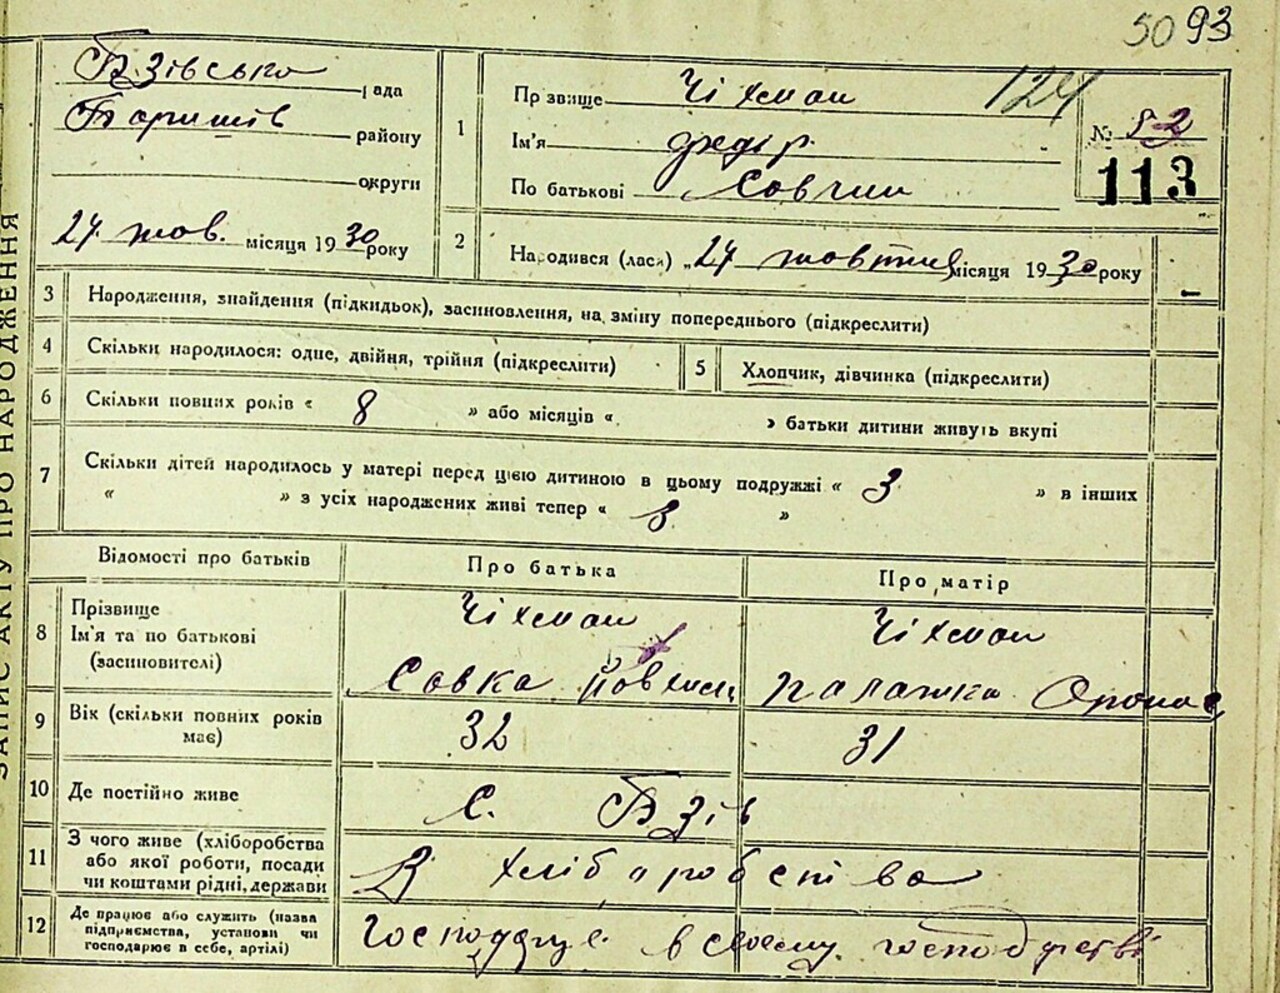 5093
Бзівська рада
Баришів району
округи
27 жов. місяця 1930 року
1
Прізвище Чіхман
Ім'я Федір
По батькові Совчин
124
№ 52
113
2
Народився (лася) „27 жовтня місяця 1930 року
ЗАПИС АКТУ ПРО НАРОДЖЕННЯ
3 Народження, знайдення (підкидьок), засиновлення, на зміну попереднього (підкреслити)
4 Скільки народилося: одне, двійня, трійня (підкреслити)
5 Хлопчик, дівчинка (підкреслити)
6 Скільки повних років « 8 » або місяців « » батьки дитини живуть вкупі
7 Скільки дітей народилось у матері перед цією дитиною в цьому подружжі « 3 » в інших
« » з усіх народжених живі тепер « 3 »
Відомості про батьків Про батька Про матір
8 Прізвище Чіхман Чіхман
Ім'я та по батькові
(засиновителі) Совка Палажка
9 Вік (скільки повних років 32 31
має)
10 Де постійно живе с. Бзів
11 З чого живе (хліборобства
або якої роботи, посади З хліборобства
чи коштами рідні, держави
12 Де працює або служить (назва
підприємства, установи чи Господарює в своєму господарстві
господарює в себе, артілі)